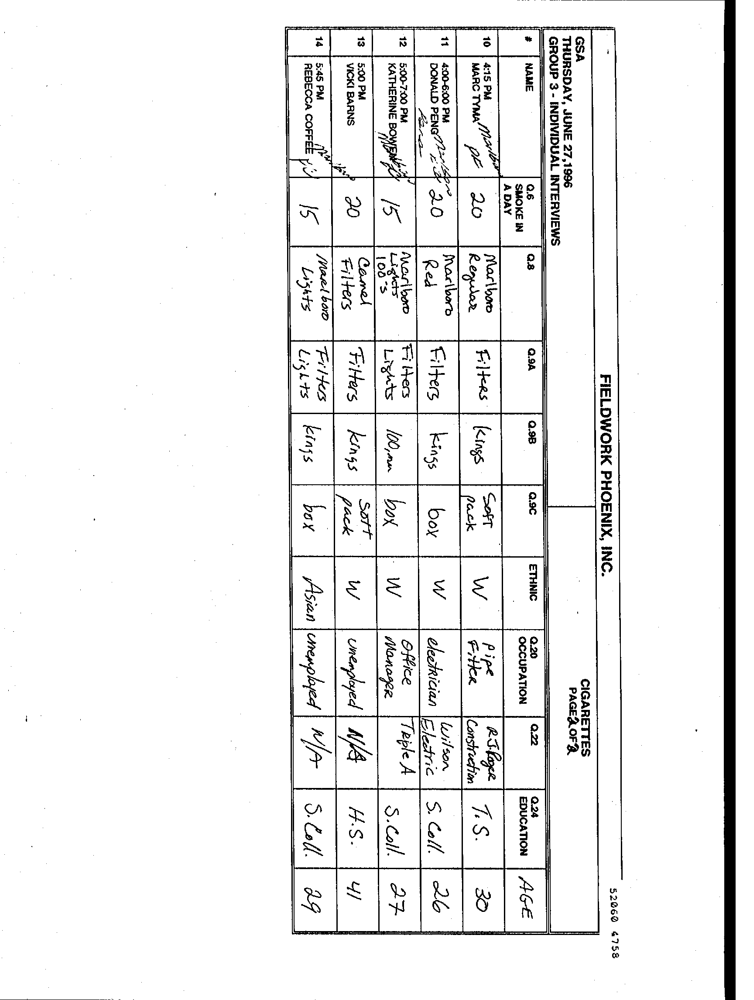 52060 4758
FIELDWORK PHOENIX, INC.
GSA
THURSDAY, JUNE 27,1996
GROUP 3 - INDIVIDUAL INTERVIEWS
CIGARETTES
PAGE 2 OF 2
# NAME Q.6 SMOKE IN A DAY Q.8 Q.9A Q.9B Q.9C ETHNIC Q.20 OCCUPATION Q.22 Q.24 EDUCATION AGE
10 4:15 PM MARC TYMA Marlboro 20 Marlboro Regular Filters Kings Soft pack W Pipe Fitter Construction T.S. 30
11 4:00-6:00 PM DONALD PENG 20 Marlboro Red Filters kings box W electrician Wilson Electric S. Coll. 26
12 5:00-7:00 PM KATHERINE BOWEN 15 Marlboro Lights 100's Filters Lights 100,mm box W Office Manager Triple A S.Coll. 27
13 5:00 PM VICKI BARNS 20 Camel Filters Filters kings Soft pack W unemployed N/A H.S. 41
14 5:45 PM REBECCA COFFEE 15 Marlboro Lights Filters Lights kings box Asian unemployed N/A S.Coll. 29